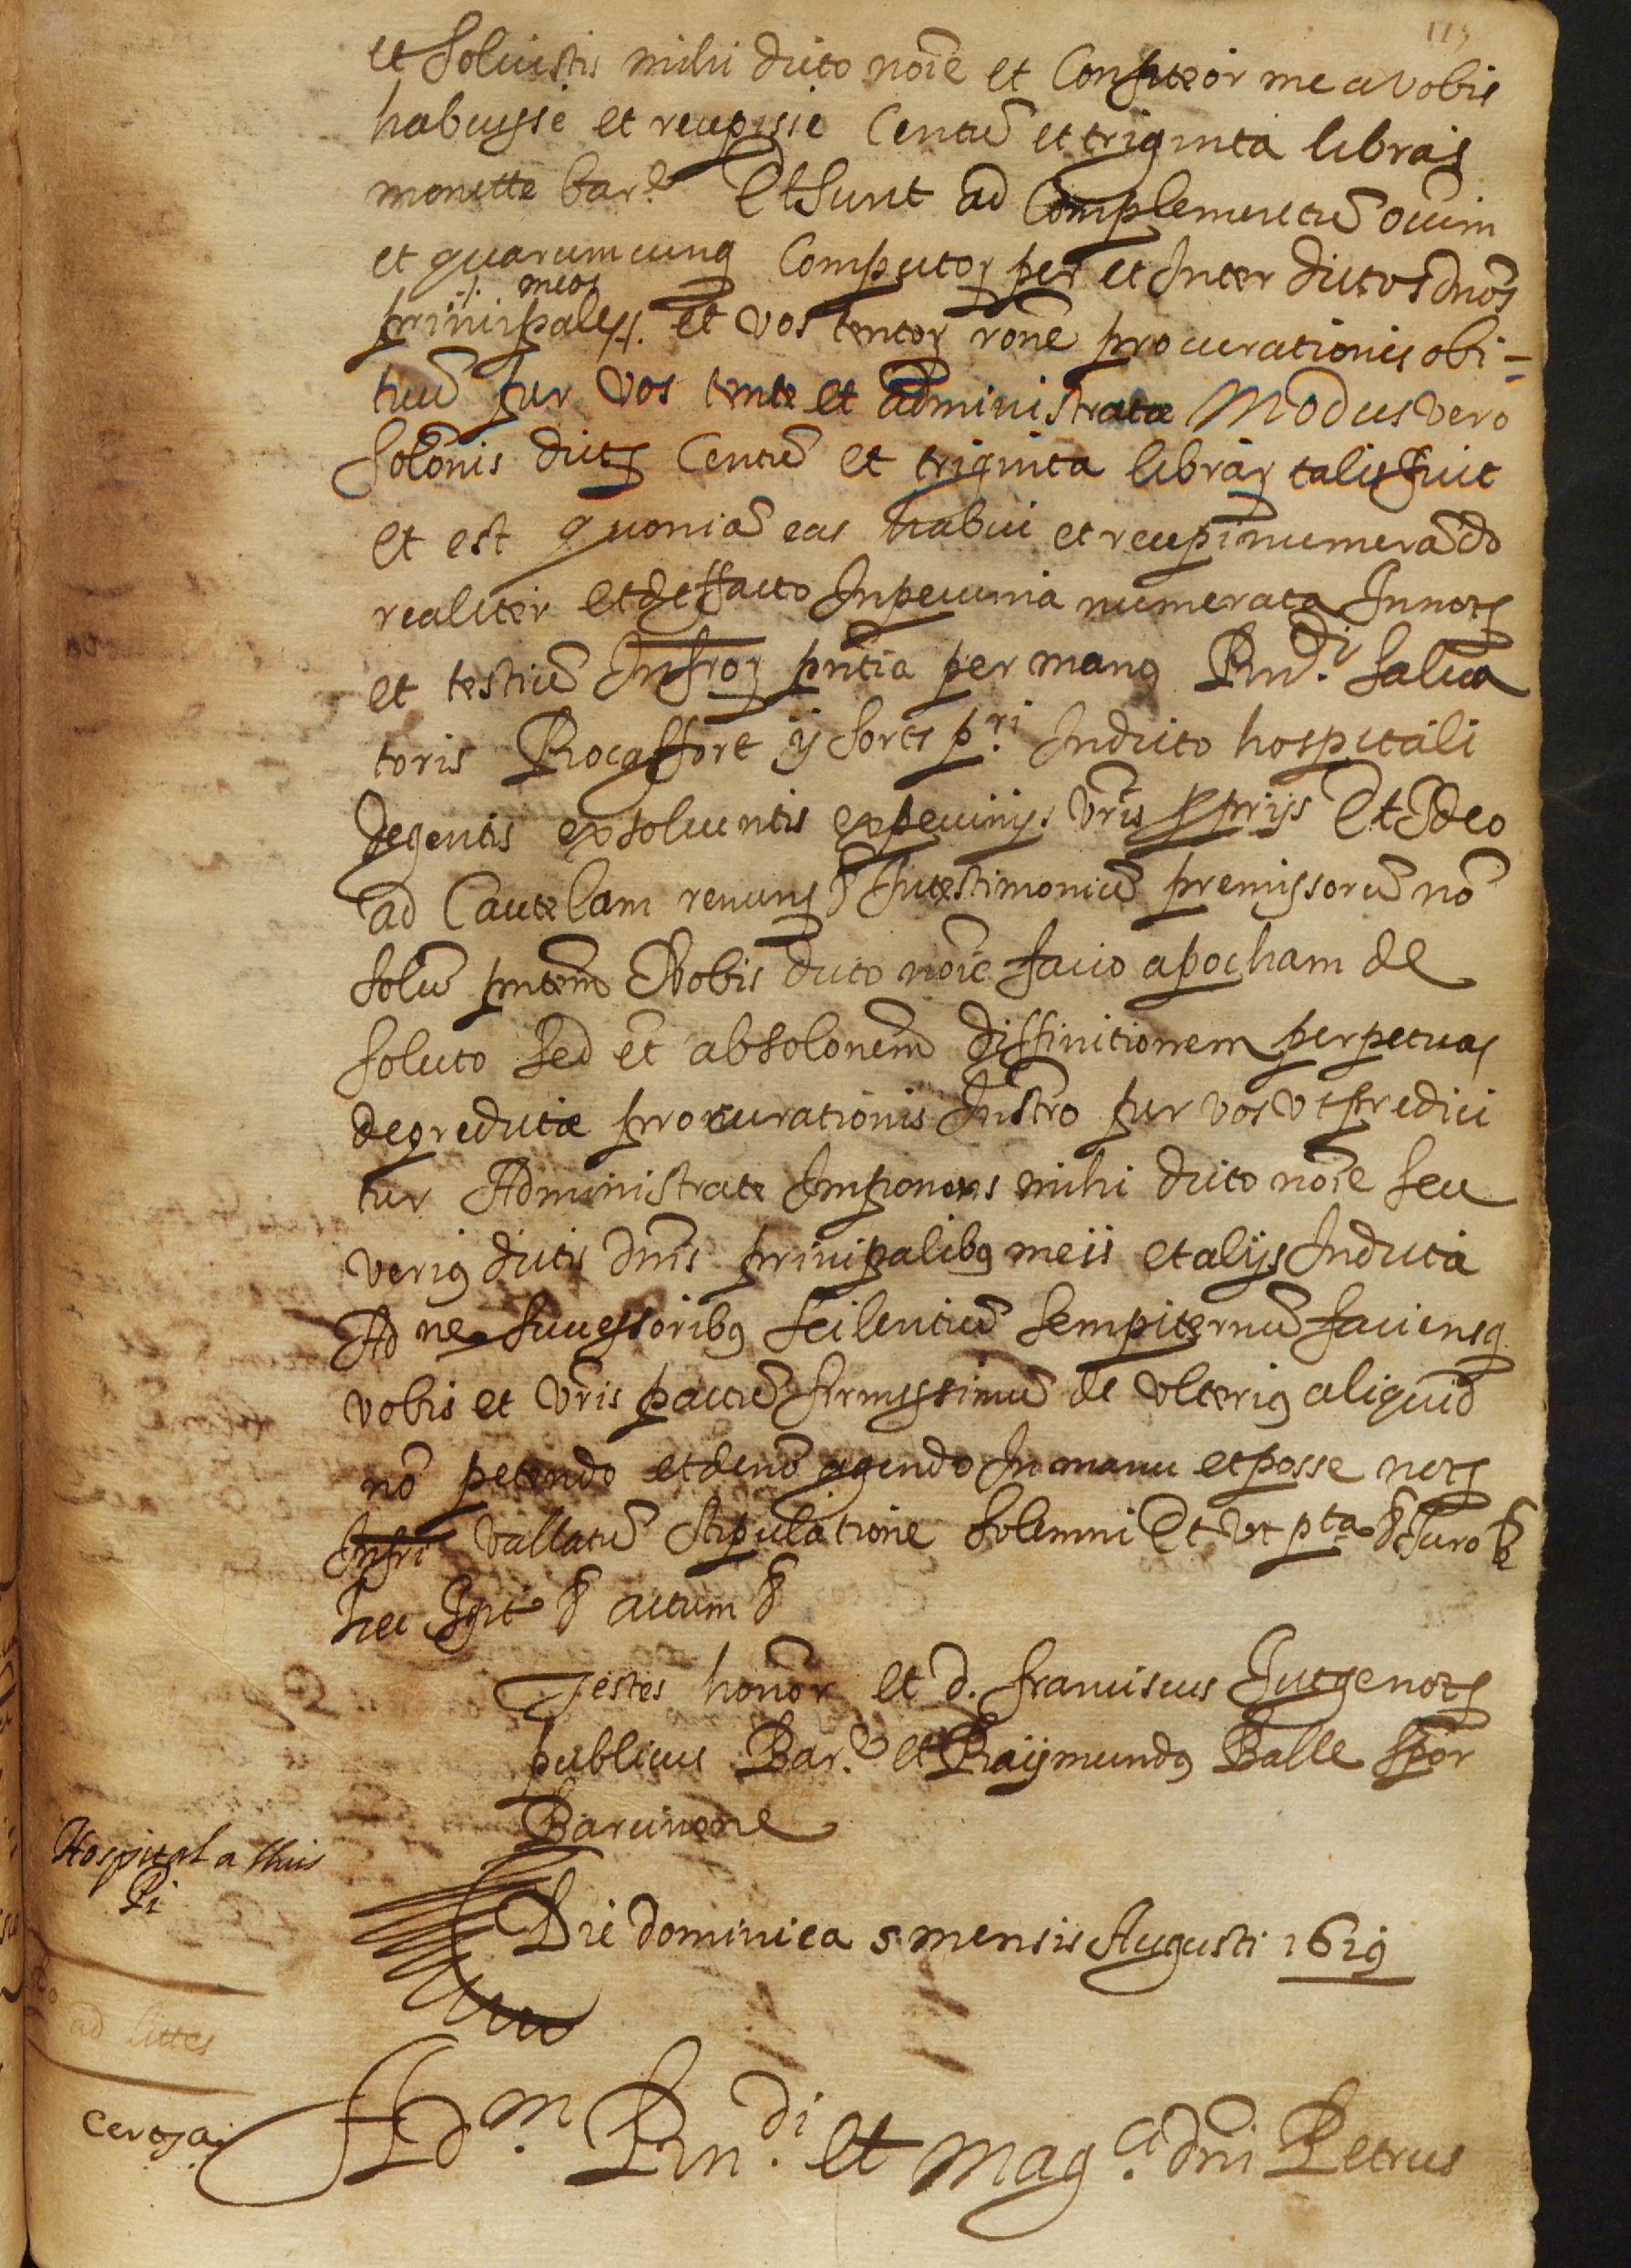 113
et soluistis mihi dicto noīe et Confiteor me a vobis
habuisse et recepisse Centū et triginta libras
monette barᵉ Et Sunt ad Complementū oīum
et quarumcunq Computoꝝ per et Inter dictos dnōs
principales ./. meos ./. et vos tentoꝝ ronē procurationis obi-
tuū per vos tente et administrate Modus vero
solōnis dictꝝ Centū et triginta libraꝝ talis fuit
et est quoniā eas habui et recepi numerādo
realiter et deffacto In pecunia numerata In notꝭ
et testiū Infroꝝ pn̄tia per manꝰ Rndⁱ. Salua
toris Rocaffort ÿ fortis pʳⁱ. In dicto hospitali
degentis exsoluentis ex pecunijs vrīs pprijs Et Ideo
ad Cautelam renuns & In testimoniū premissorū nō
solū pn̄tem vobis dicto noīe facio apocham de
soluto sed et̄ absolonem̄ diffinitionem perpetuas
de predicta procurationis Instr̄o per vos vt predici
tur Administrate Imponens mihi dicto noīe seu
veriꝰ dictis dnīs principalibꝰ meis et alijs In dicta
Ad ne successoribꝰ scilentiū sempiternū faciensq
vobis et vrīs pactū firmissimū de vlteriꝰ aliquid
nō petendo et de nō agendo In manu et posse notꝭ
Infri vallatū stipulatione solemni Et vt pta & Juro &
hec Igit & actum &
Testes honor̄ et d. franciscus Jutge notꝭ
publicus Barᵉ. et Raÿmundꝰ Balle scp̄or
Barcinone
Hospital a thus
Pi
Die dominica 5 mensis Augusti 1619
ad littes
Certga.
Adᵐ. Rnᵈⁱ. et magᶜⁱ. dnī Petrus